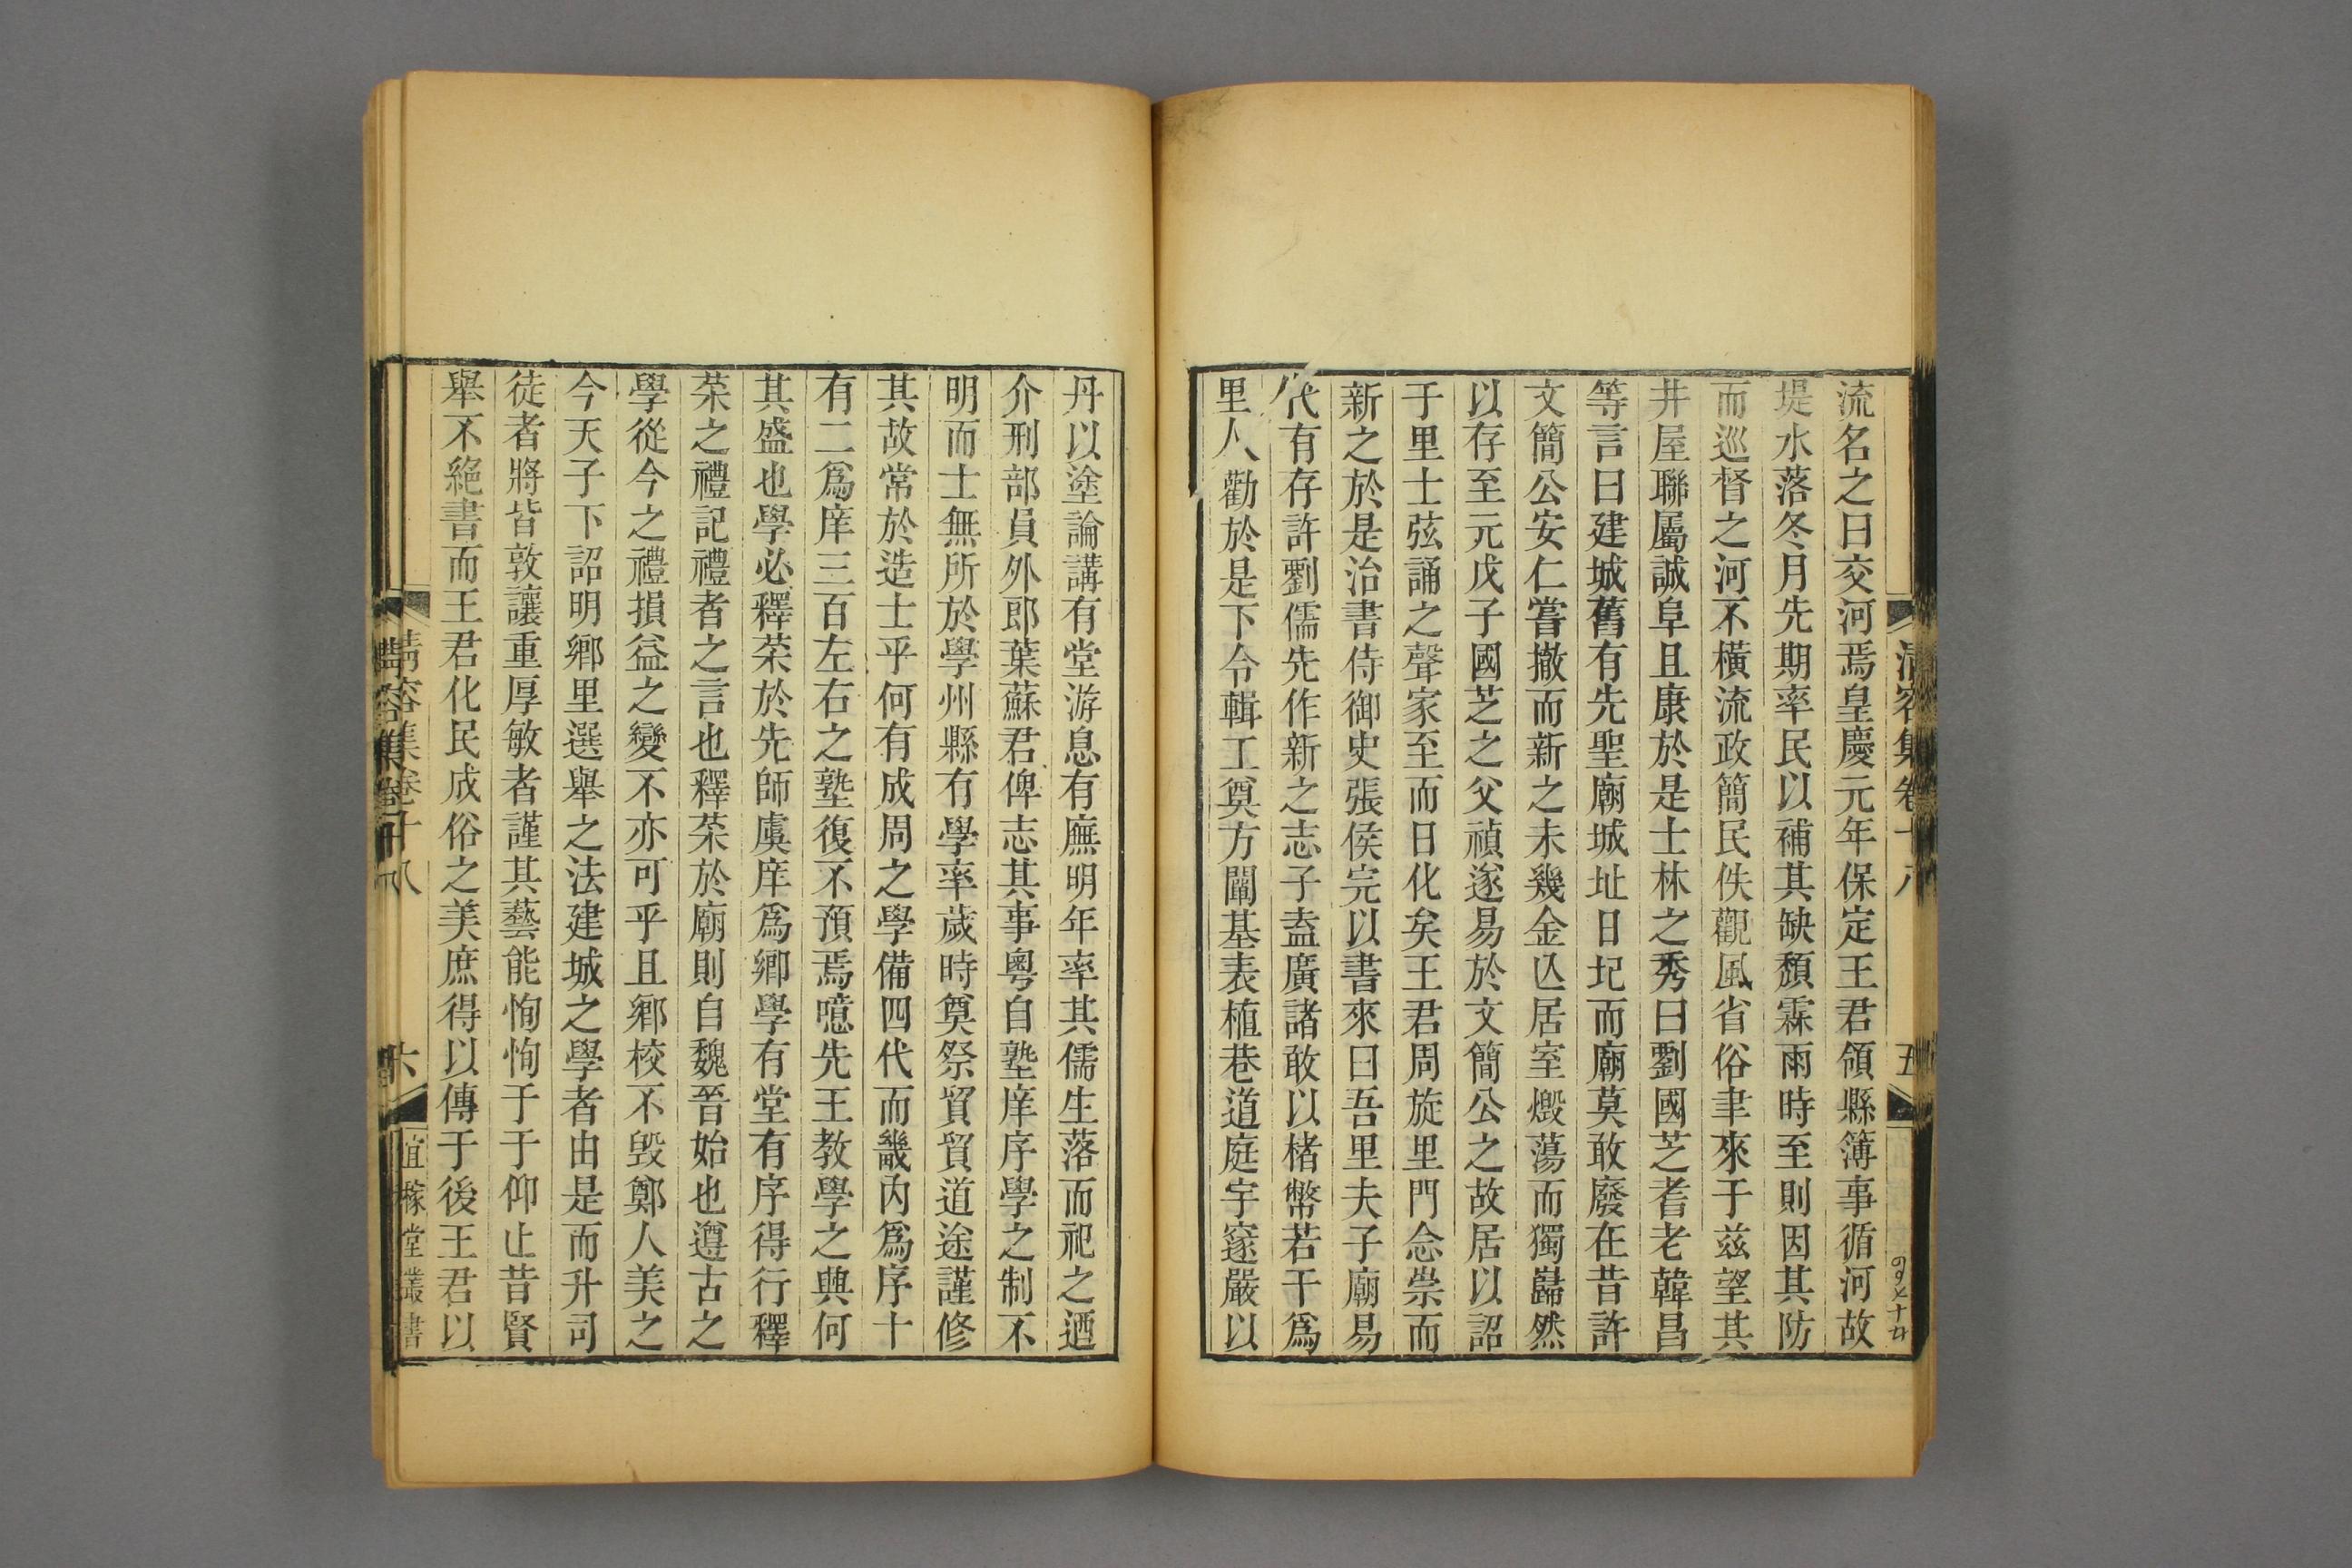 流名之曰交河焉皇慶元年保定王君領縣簿事循河故
堤水落冬月先期率民以補其缺頽霖雨時至則因其防
而巡督之河不橫流政簡民佚觀風省俗聿來于兹望其
井屋聯屬誠阜且康於是士林之秀曰劉國芝耆老韓昌
等言曰建城舊有先聖廟城址日圮而廟莫敢廢在昔許
文簡公安仁嘗撤而新之未幾金亾居室燬蕩而獨巋然
以存至元戊子國芝之父禎遂易於文簡公之故居以詔
于里士弦誦之聲家至而日化矣王君周旋里門念祟而
新之於是治書侍御史張侯完以書來曰吾里夫子廟易
代有存許劉儒先作新之志子盍廣諸敢以楮幣若干爲
里人勸於是下令輯工奠方闢基表植巷道庭宇邃嚴以
丹以塗論講有堂游息有廡明年率其儒生落而祀之迺
介刑部員外郎葉蘇君俾志其事粵自塾庠序學之制不
明而士無所於學州縣有學率歲時奠祭貿貿道途謹修
其故常於造士乎何有成周之學備四代而畿内爲序十
有二爲庠三百左右之塾復不預焉噫先王教學之典何
其盛也學必釋菜於先師虞庠爲鄉學有堂有序得行釋
菜之禮記禮者之言也釋菜於廟則自魏晉始也遵古之
學從今之禮損益之變不亦可乎且鄉校不毀鄭人美之
今天子下詔明鄉里選舉之法建城之學者由是而升司
徒者將皆敦讓重厚敏者謹其藝能恂恂于于仰止昔賢
舉不絶書而王君化民成俗之美庶得以傳于後王君以
清容集卷十八
五
清容集卷十八
六
宜稼堂叢書